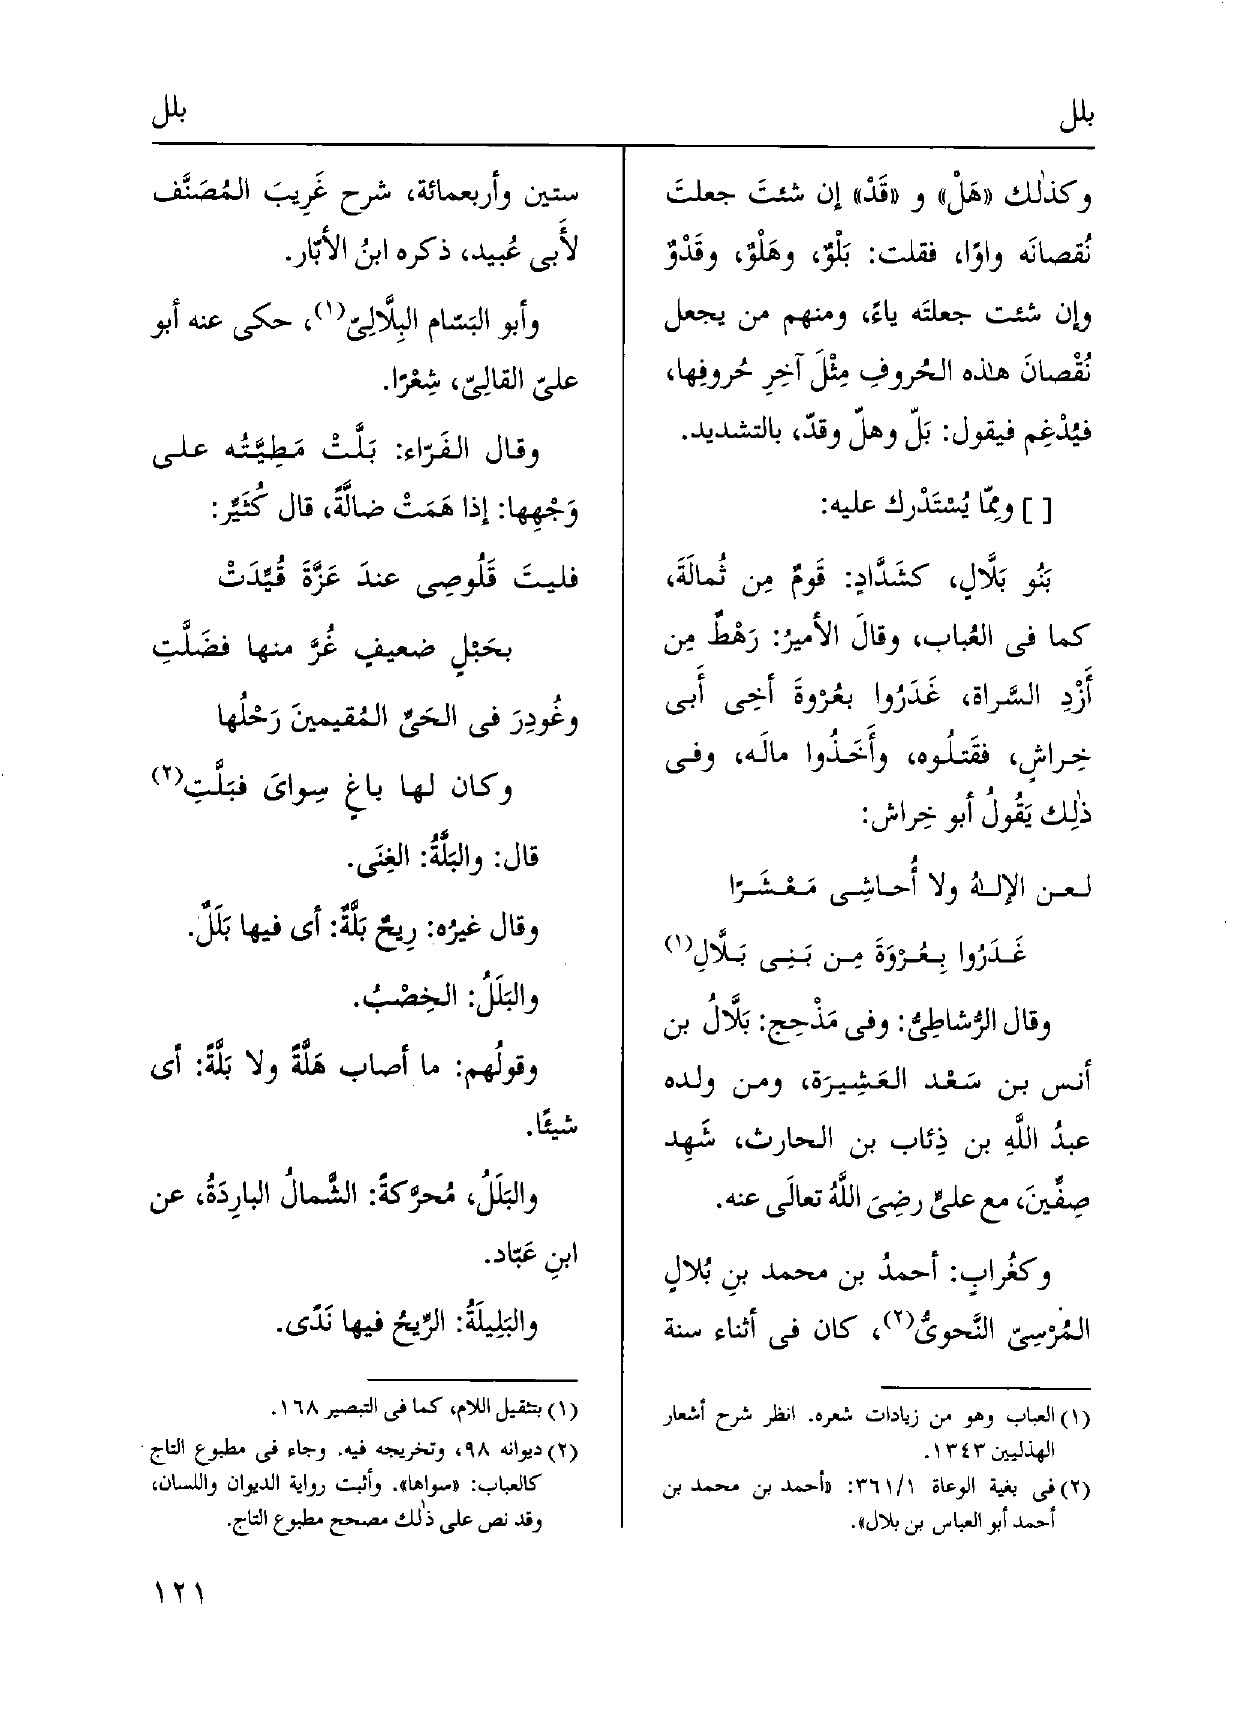 بلل
بلل
وكذٰلك «هَلْ» و «قَدْ» إن شئتَ جعلتَ
نُقصانَه واوًا، فقلت: بَلْوٌ، وهَلْوٌ، وقَدْوٌ
وإن شئت جعلتَه ياءً، ومنهم من يجعل
نُقْصانَ هذه الحُروفِ مِثْلَ آخِرِ حُروفِها،
فيُدْغِم فيقول: بَلّ وهلّ وقدّ، بالتشديد.
[ ] وممّا يُسْتَدْرك عليه:
بَنُو بَلَّالٍ، كشَدَّادٍ: قَومٌ مِن ثُمالَةَ،
كما فى العُباب، وقالَ الأميرُ: رَهْطٌ مِن
أَزْدِ السَّراة، غَدَرُوا بعُرْوةَ أخِى أَبى
خِراشٍ، فقَتلُوه، وأَخَذُوا مالَه، وفى
ذٰلِك يَقُولُ أبو خِراش:
لعن الإلـٰهُ ولا أُحاشِى مَعْشَرًا
غَدَرُوا بِعُرْوَةَ مِن بَنِى بَلَّالِ(١)
وقال الرُّشاطِىُّ: وفى مَذْحِج: بَلَّالُ بن
أنس بن سَعْد العَشِيرَة، ومن ولده
عبدُ اللَّهِ بن ذِئاب بن الحارث، شَهِد
صِفِّينَ، مع علىٍّ رضِىَ اللَّهُ تعالَى عنه.
وكغُرابٍ: أحمدُ بن محمد بنِ بُلالٍ
المُرْسِىّ النَّحوىُّ(٢)، كان فى أثناء سنة
(١) العباب وهو من زيادات شعره. انظر شرح أشعار
الهذليين ١٣٤٣.
(٢) فى بغية الوعاة ٣٦١/١: «أحمد بن محمد بن
أحمد أبو العباس بن بلال».
ستين وأربعمائة، شرح غَرِيبَ المُصَنَّف
لأَبى عُبيد، ذكره ابنُ الأبّار.
وأبو البَسّام البِلَّالِىّ(١)، حكى عنه أبو
علىّ القالِىّ، شِعْرًا.
وقال الفَرّاء: بَلَّتْ مَطِيَّتُه على
وَجْهِها: إذا هَمَتْ ضالَّةً، قال كُثَيِّرٌ:
فليتَ قَلُوصِى عندَ عَزَّةَ قُيِّدَتْ
بحَبْلٍ ضعيفٍ غُرَّ منها فضَلَّتِ
وغُودِرَ فى الحَىِّ المُقيمينَ رَحْلُها
وكان لها باغٍ سِواىَ فبَلَّتِ(٢)
قال: والبَلَّةُ: الغِنَى.
وقال غيرُه: رِيحٌ بَلَّةٌ: أى فيها بَلَلٌ.
والبَلَلُ: الخِصْبُ.
وقولُهم: ما أصاب هَلَّةً ولا بَلَّةً: أى
شيئًا.
والبَلَلُ، مُحرَّكةً: الشَّمالُ البارِدَةُ، عن
ابنِ عَبّاد.
والبَلِيلَةُ: الرِّيحُ فيها نَدًى.
(١) بتثقيل اللام، كما فى التبصير ١٦٨.
(٢) ديوانه ٩٨، وتخريجه فيه. وجاء فى مطبوع التاج
كالعباب: «سواها». وأثبت رواية الديوان واللسان،
وقد نص على ذٰلك مصحح مطبوع التاج.
١٢١